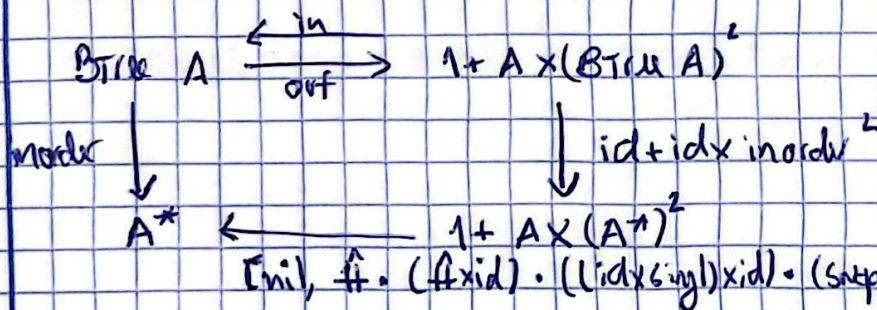 in
BTree A ⟵ ⟶ 1 + A × (BTree A)²
out
inorder id + id × inorder²
A* ⟵ 1 + A × (A*)²
[nil, ⧺ · (⧺×id) · ((id×singl)×id) · (swap